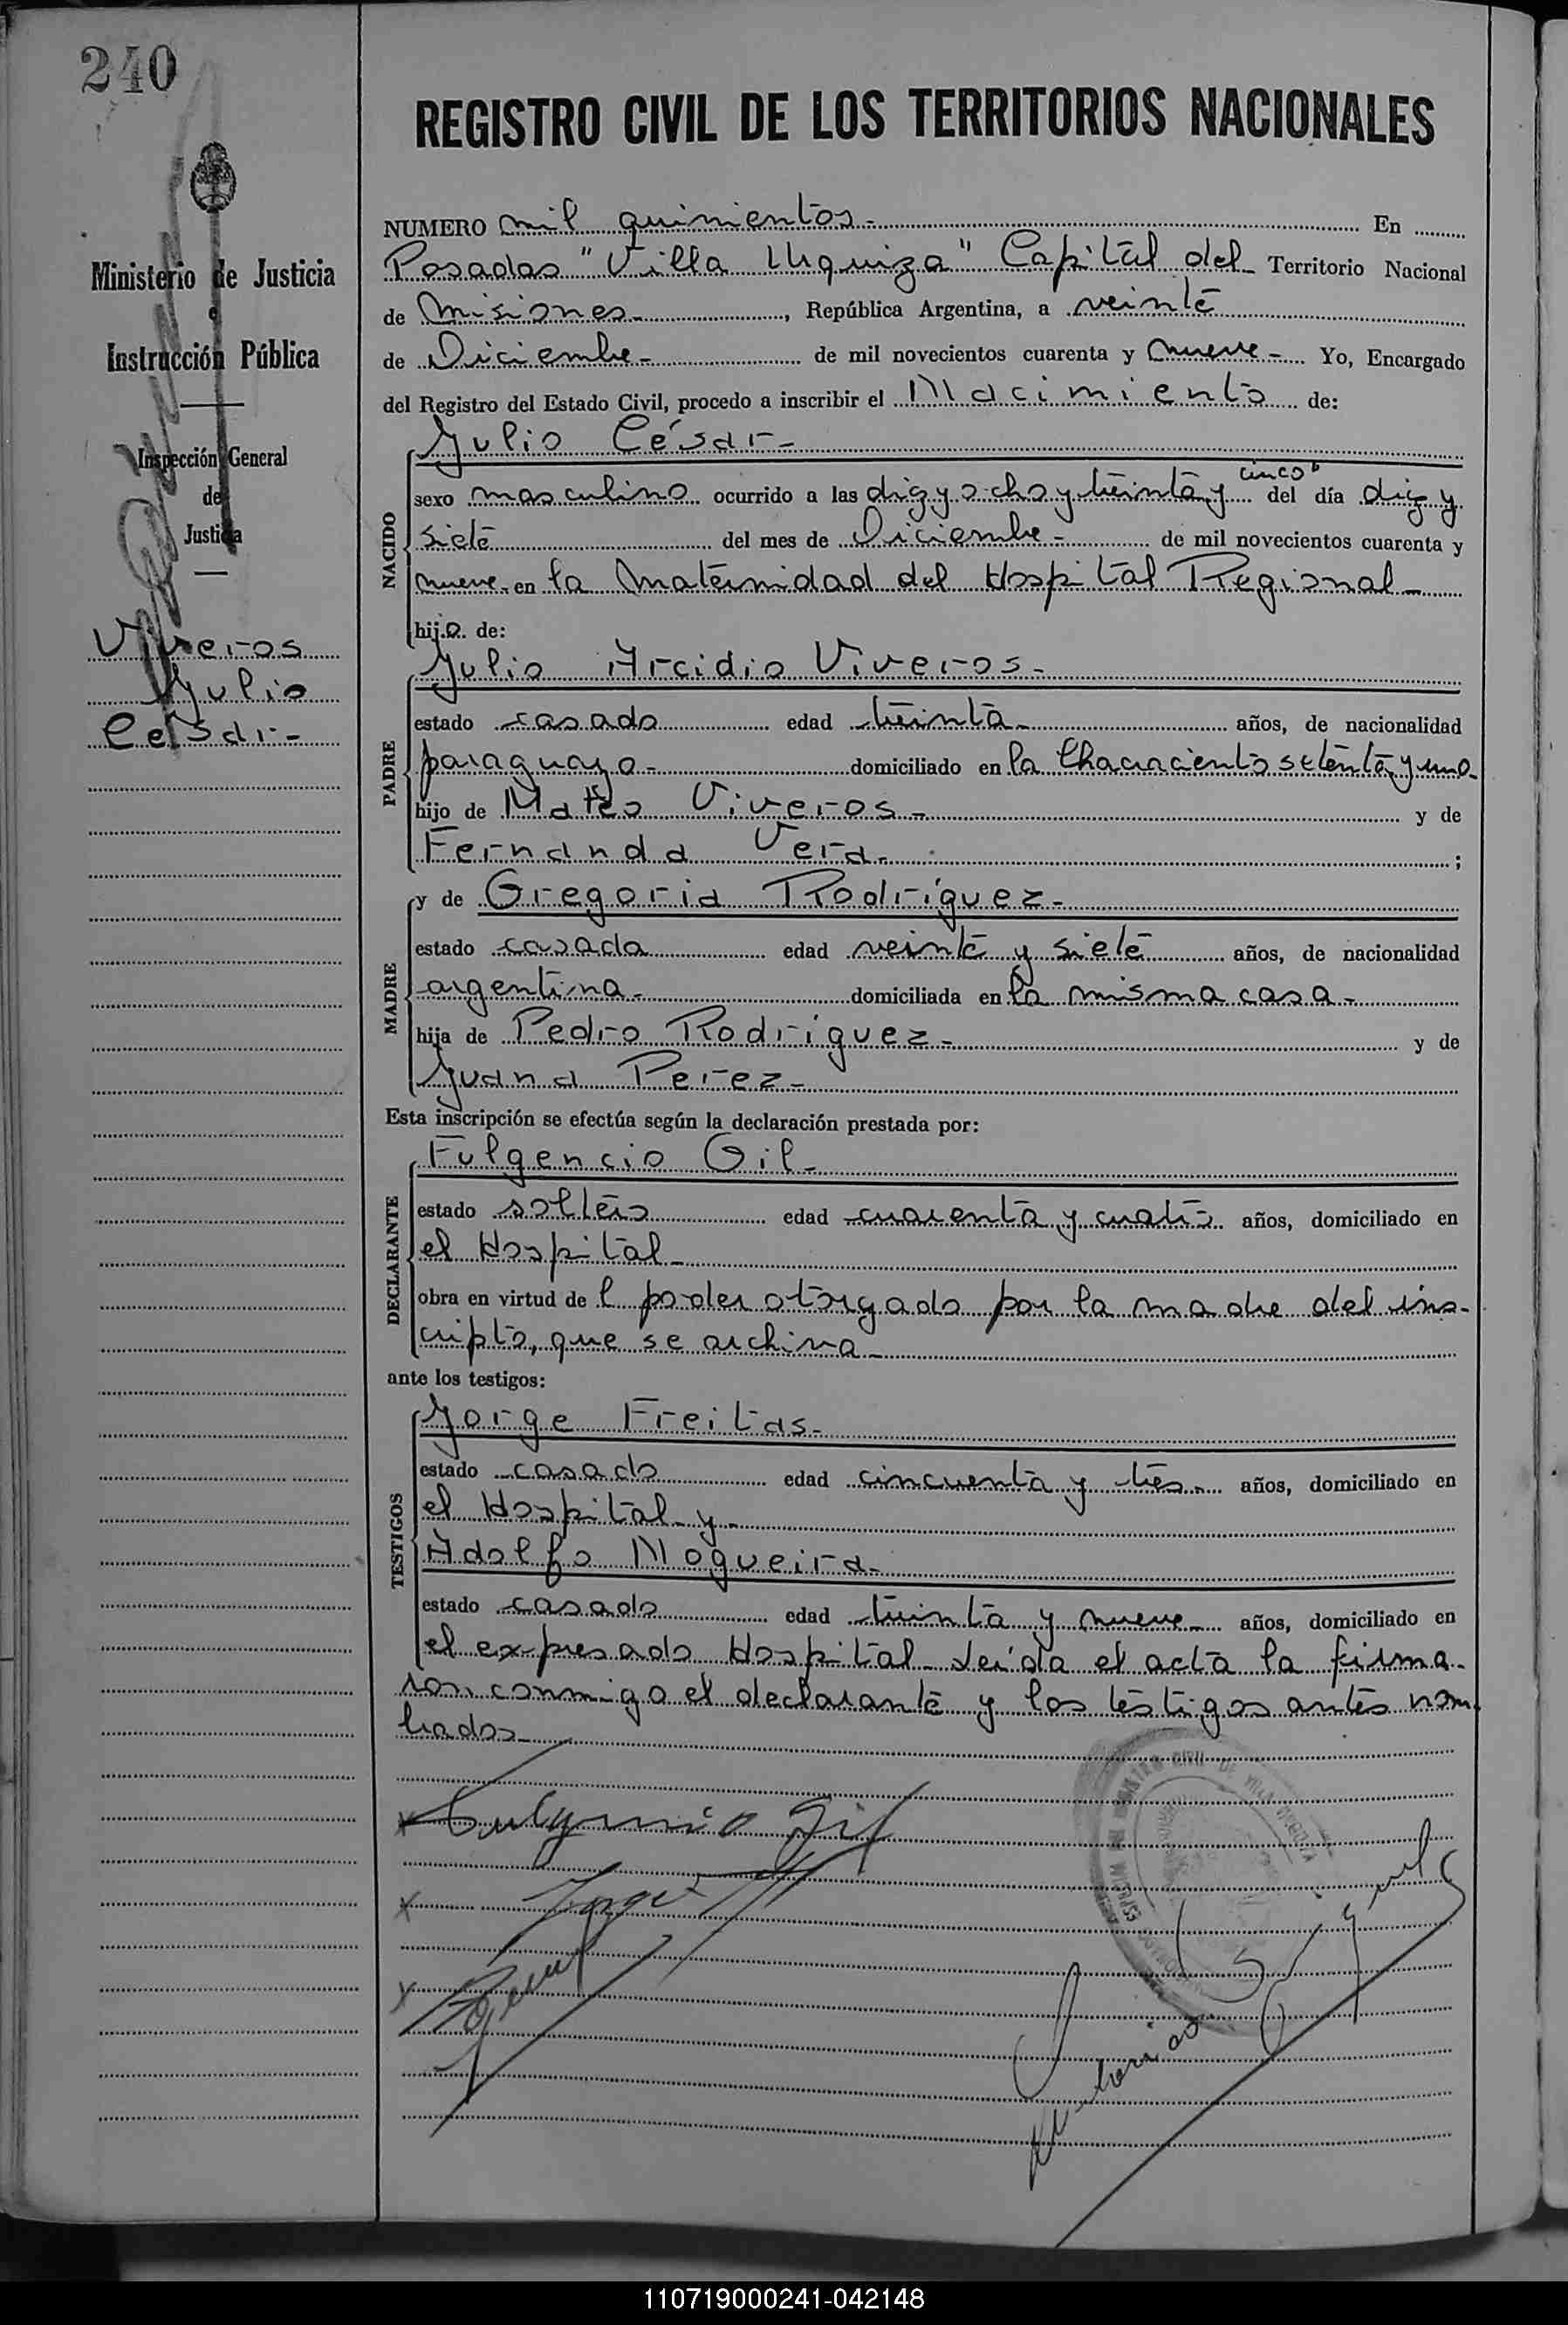 240
REGISTRO CIVIL DE LOS TERRITORIOS NACIONALES
Ministerio de Justicia
e
Instrucción Pública
Inspección General
de
Justicia
Viveros
Julio
César-
NUMERO mil quinientos- En
Posadas "Villa Urquiza" Capital del Territorio Nacional
de Misiones-, República Argentina, a veinte
de Diciembre- de mil novecientos cuarenta y nueve- Yo, Encargado
del Registro del Estado Civil, procedo a inscribir el Nacimiento de:
Julio César-
NACIDO
cinco
sexo masculino ocurrido a las diez y ocho y treinta y del día diez y
siete del mes de Diciembre- de mil novecientos cuarenta y
nueve- en la Maternidad del Hospital Regional-
hijo de:
Julio Arcidio Viveros-
PADRE
estado casado edad treinta- años, de nacionalidad
paraguayo- domiciliado en la Chacra ciento setenta y uno-
hijo de Mateo Viveros- y de
Fernanda Vera- ;
y de Gregoria Rodríguez-
MADRE
estado casada edad veinte y siete años, de nacionalidad
argentina- domiciliada en la misma casa-
hija de Pedro Rodríguez- y de
Juana Perez-
Esta inscripción se efectúa según la declaración prestada por:
Fulgencio Gil-
DECLARANTE
estado soltero edad cuarenta y cuatro años, domiciliado en
el Hospital-
obra en virtud del poder otorgado por la madre del ins-
cripto, que se archiva-
ante los testigos:
Jorge Freitas-
TESTIGOS
estado casado edad cincuenta y tres- años, domiciliado en
el Hospital- y-
Adolfo Nogueira-
estado casado edad treinta y nueve- años, domiciliado en
el expresado Hospital- Leída el acta la firma-
ron conmigo el declarante y los testigos antes nom-
brados-
x Fulgencio Gil
x Jorge
x
110719000241-042148